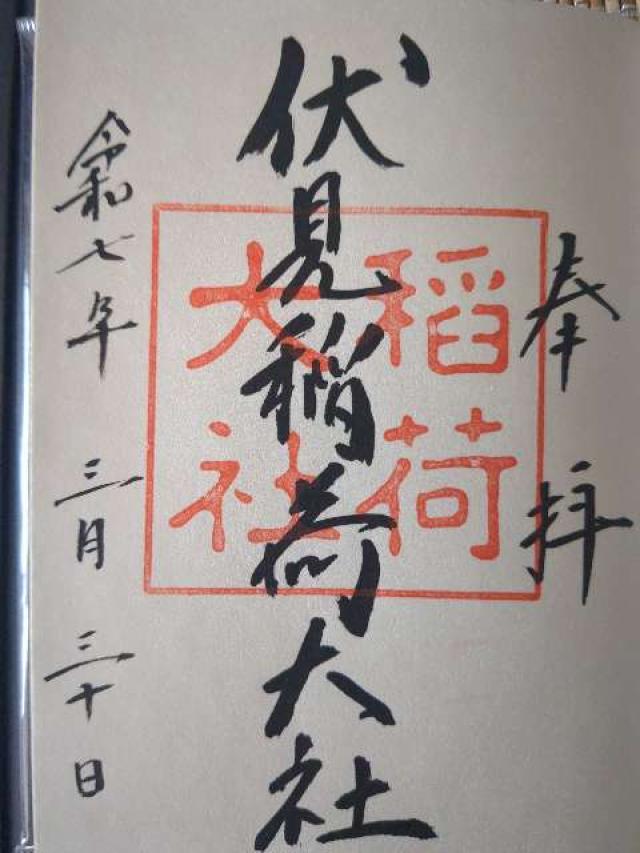 奉拝
伏見稲荷大社
稲荷
大社
令和七年 三月 三十日